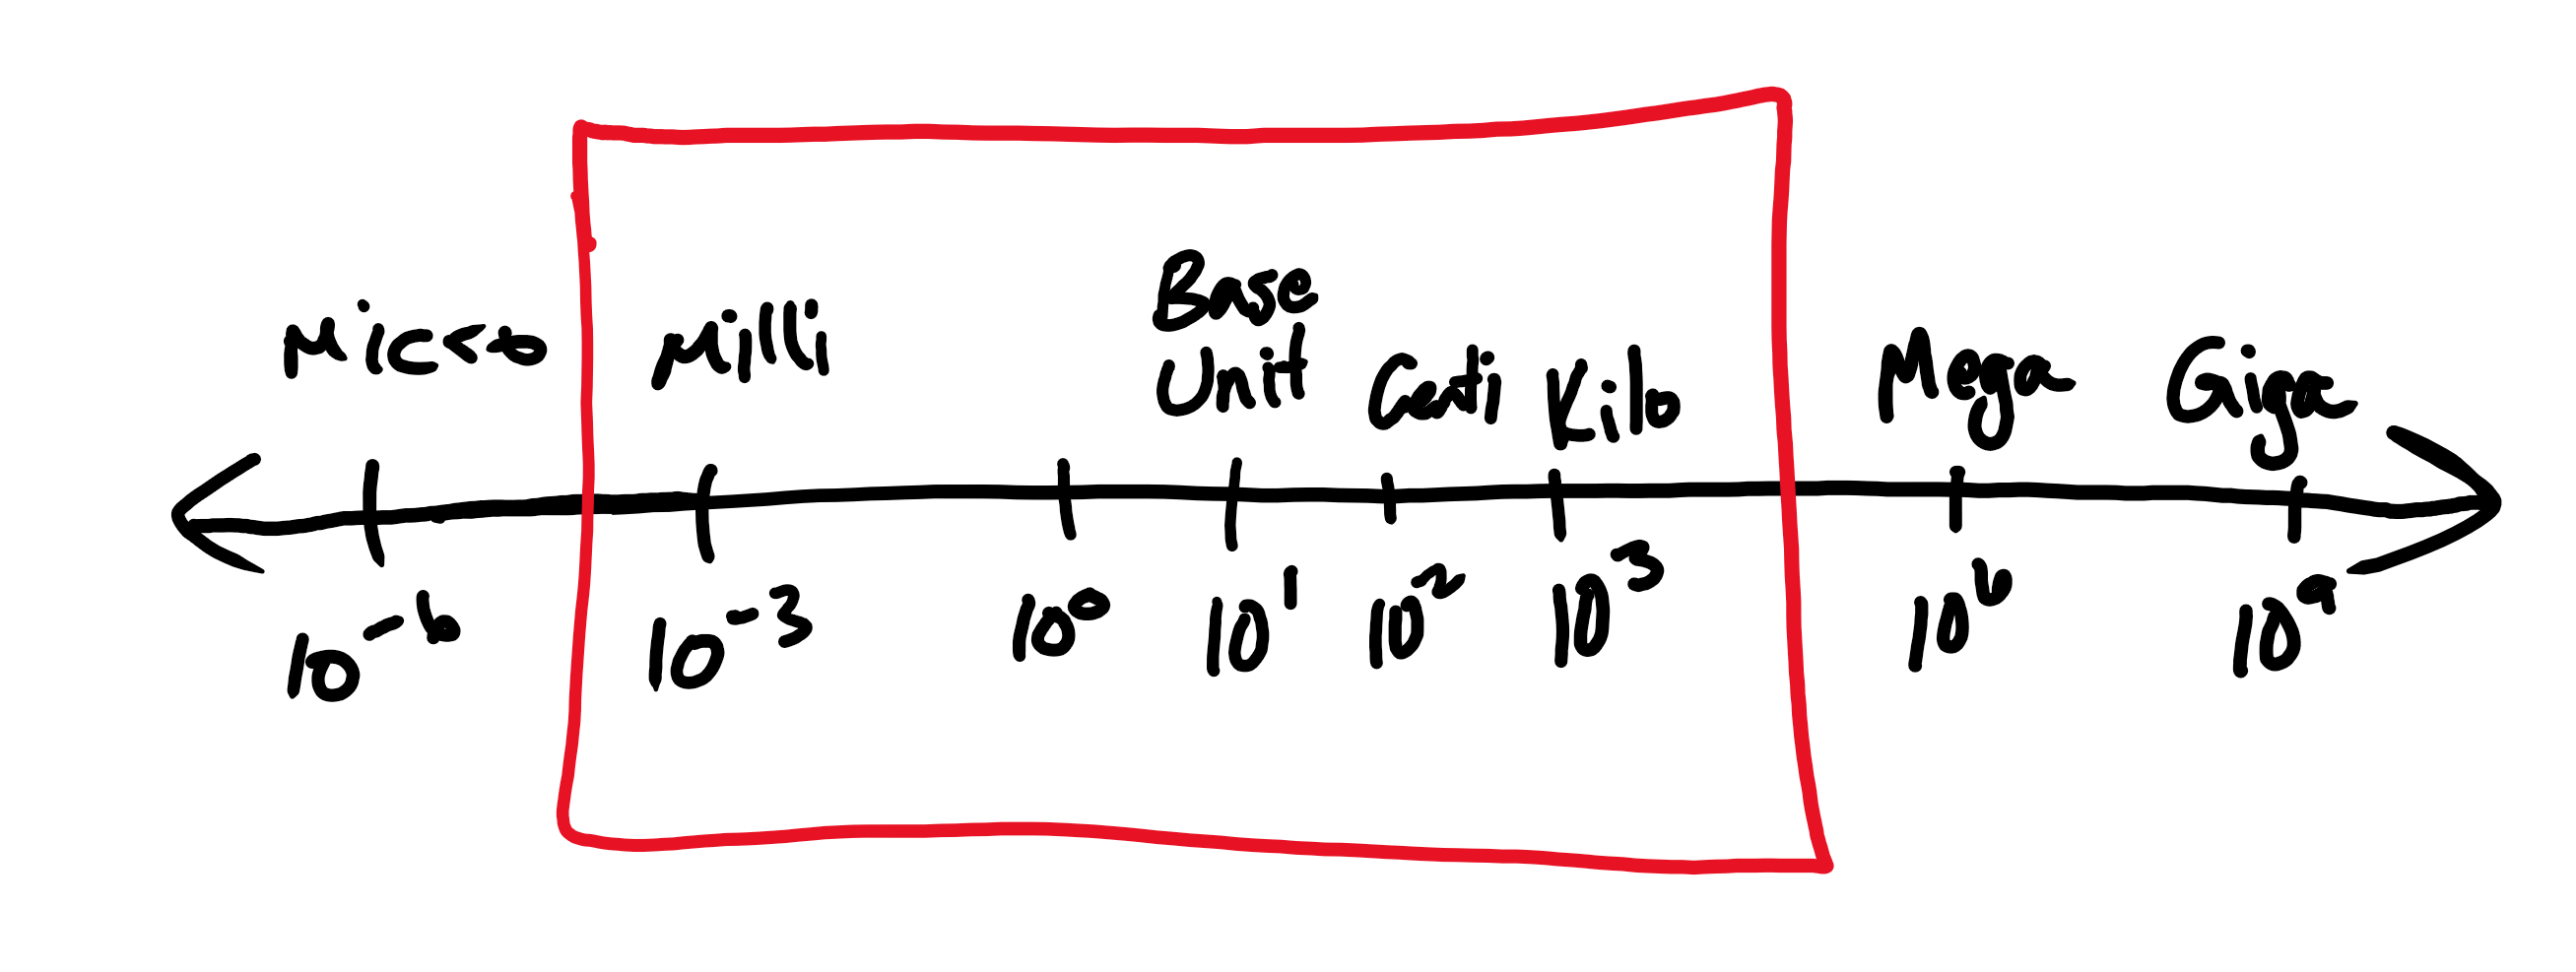 Micro
Milli
Base
Unit
Centi
Kilo
Mega
Giga
10⁻⁶
10⁻³
10⁰
10¹
10²
10³
10⁶
10⁹